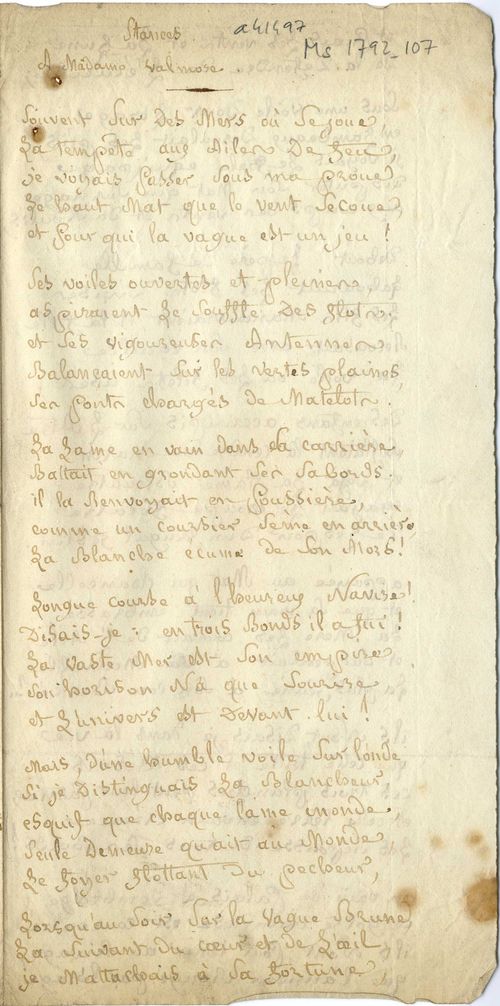 Stances
a41497
Ms 1792_107
A Madame Valmore.
Souvent sur Des Mers où Se joue,
La tempête aux Ailes De Feu,
je voyais Passer Sous ma proue
Le haut Mat que le vent Secoue,
et Pour qui la vague est un jeu !
Ses voiles ouvertes et pleines,
aspiraient Le Souffle Des flots,
et Ses Vigoureuses Antennes
Balançaient Sur les vertes plaines,
Ses Ponts chargés de Matelots.
La Lame en vain dans Sa carrière,
Battait en grondant Ses Sabords.
il la Renvoyait en Poussière,
comme un coursier Sème en arrière
La Blanche ecume de Son Mors !
Longue course à l'heureux Navire !
Disais-je : en trois Bonds il a fui !
La vaste Mer est Son empire
Son horison N'a que Sourire
et L'univers est Devant lui !
Mais, d'une humble voile Sur l'onde
Si je Distinguais La Blancheur
esquif que chaque lame inonde,
Seule Demeure qu'ait au Monde,
Le foyer flottant Du pecheur,
Lorsqu'au Soir Sur la vague Brune
La Suivant du cœur et de L'œil
je M'attachais à Sa fortune,